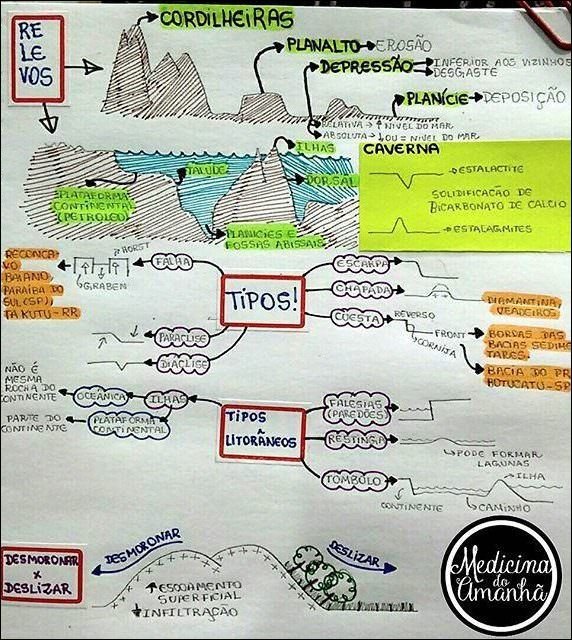 RE
LE
VOS
CORDILHEIRAS
PLANALTO → EROSÃO
DEPRESSÃO → INFERIOR AOS VIZINHOS
DESGASTE
PLANÍCIE → DEPOSIÇÃO
RELATIVA → ↑ NÍVEL DO MAR
ABSOLUTA → ↓ OU = NÍVEL DO MAR
ILHAS
TALUDE
DORSAL
PLATAFORMA
CONTINENTAL
(PETRÓLEO)
PLANÍCIES E
FOSSAS ABISSAIS
CAVERNA
ESTALACTITE
SOLIDIFICAÇÃO DE
BICARBONATO DE CALCIO
ESTALAGMITES
TIPOS!
FALHA
HORST
GRABEN
RECONCA
VO
BAIANO,
PARAÍBA DO
SUL (SP),
TAKUTU-RR
PARACLISE
DIÁCLISE
ESCARPA
CHAPADA
DIAMANTINA
VEADEIROS
CUESTA
REVERSO
FRONT
CORNIJA
BORDAS DAS
BACIAS SEDIMEN
TARES.
BACIA DO PR
BOTUCATU-SP
TIPOS
LITORÂNEOS
ILHAS
OCEÂNICA
NÃO É
MESMA
ROCHA DO
CONTINENTE
PLATAFORMA
CONTINENTAL
PARTE DO
CONTINENTE
FALÉSIAS
(PAREDÕES)
RESTINGA
PODE FORMAR
LAGUNAS
TÔMBOLO
ILHA
CONTINENTE
CAMINHO
DESMORONAR
X
DESLIZAR
DESMORONAR
DESLIZAR
↑ ESCOAMENTO
SUPERFICIAL
↓ INFILTRAÇÃO
Medicina
do
Amanhã